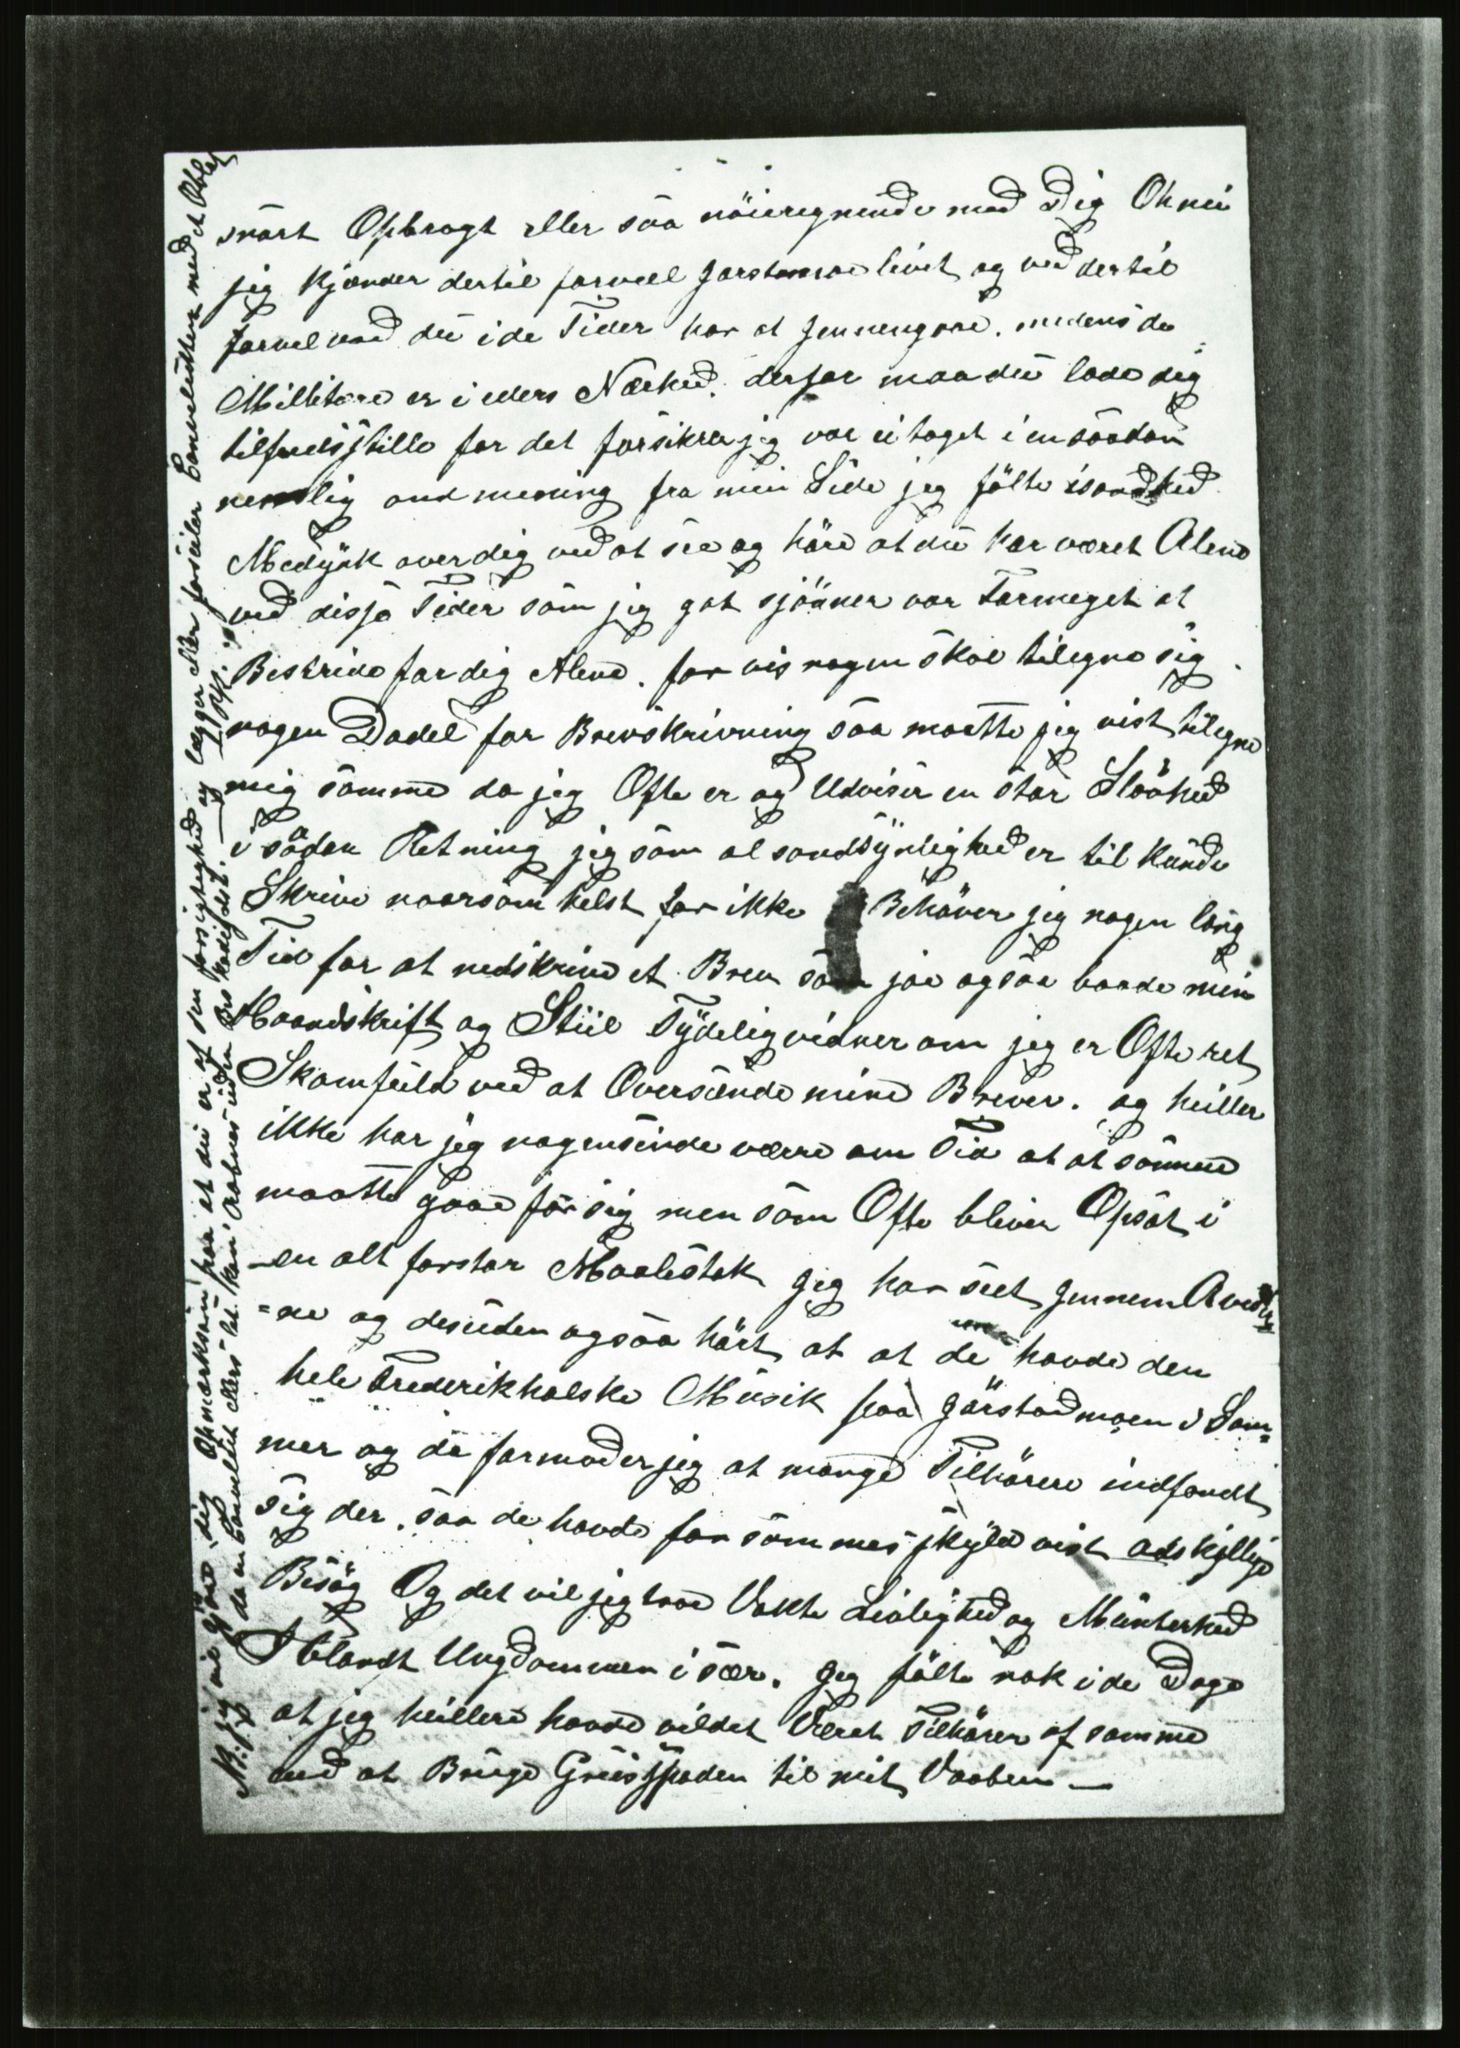 svart Opbragt eller saa nöieregnende med Dig Oh nei
jeg kjender dertil forvell livet og ved dertil
forvel vad du i de Tider har at jennemgaae. medens de
Millitære er i eders Nærhed. derfor maa du lade dig
tilfredsstille for det forsikrer jeg var ei taget i en saadan
nemlig ond mening fra min Side jeg fölte isandhed
Medynk over dig ved at see og höre at du har været Alene
ved disse Tider som jeg got sjönner var Formeget at
Bestride for dig Alene. for vis nogen skal tilegne sig
nogen Dadel for Brevskrivning saa maatte jeg vist tilegne
mig somme da jeg Ofte er og Udviser en stor Slövhed
i södan Retning jeg som al sandsynlighed er til kunde
Skrive naarsom helst for ikke Behöver jeg nogen lang
Tid for at nedskrive et Brev som jae ogsaa baade min
Haandskrift og Stiil Tydelig vidner om jeg er Ofte ret
Skamfuld ved at Oversænde mine Brever. og heiller
ikke har jeg nogensinde være om Tid at at somme
maatte gaae for sig men som Ofte bliver Opsat i
en alt forstor Maalestok jeg har seet gennem Aviser
=ne og desuden ogsaa hört at at de havde den
hele Frederikhalske Musik paa Gårstadmoen i Som=
mer og da formoder jeg at mange Tilhörere indfandt
sig der. saa de havde for sommes skyld vist adskillige
Besög Og det vil jeg troe Vakte Livlighed og Munterhed
Iblandt Ungdommen i sær. jeg fölte nok i de Dage
at jeg heillere havde vildet Været Tilhörer af samme
end at Bruge Gruisspaden til mit Vaaben —
NB: jeg vil gjöre dig Opmærksom paa at du er af den forsigtighed og lægger eller forseiler Convolutten med et Oblat
da en Convolut ellers let kan Aabnes uden Beskadigelse. — D. S.